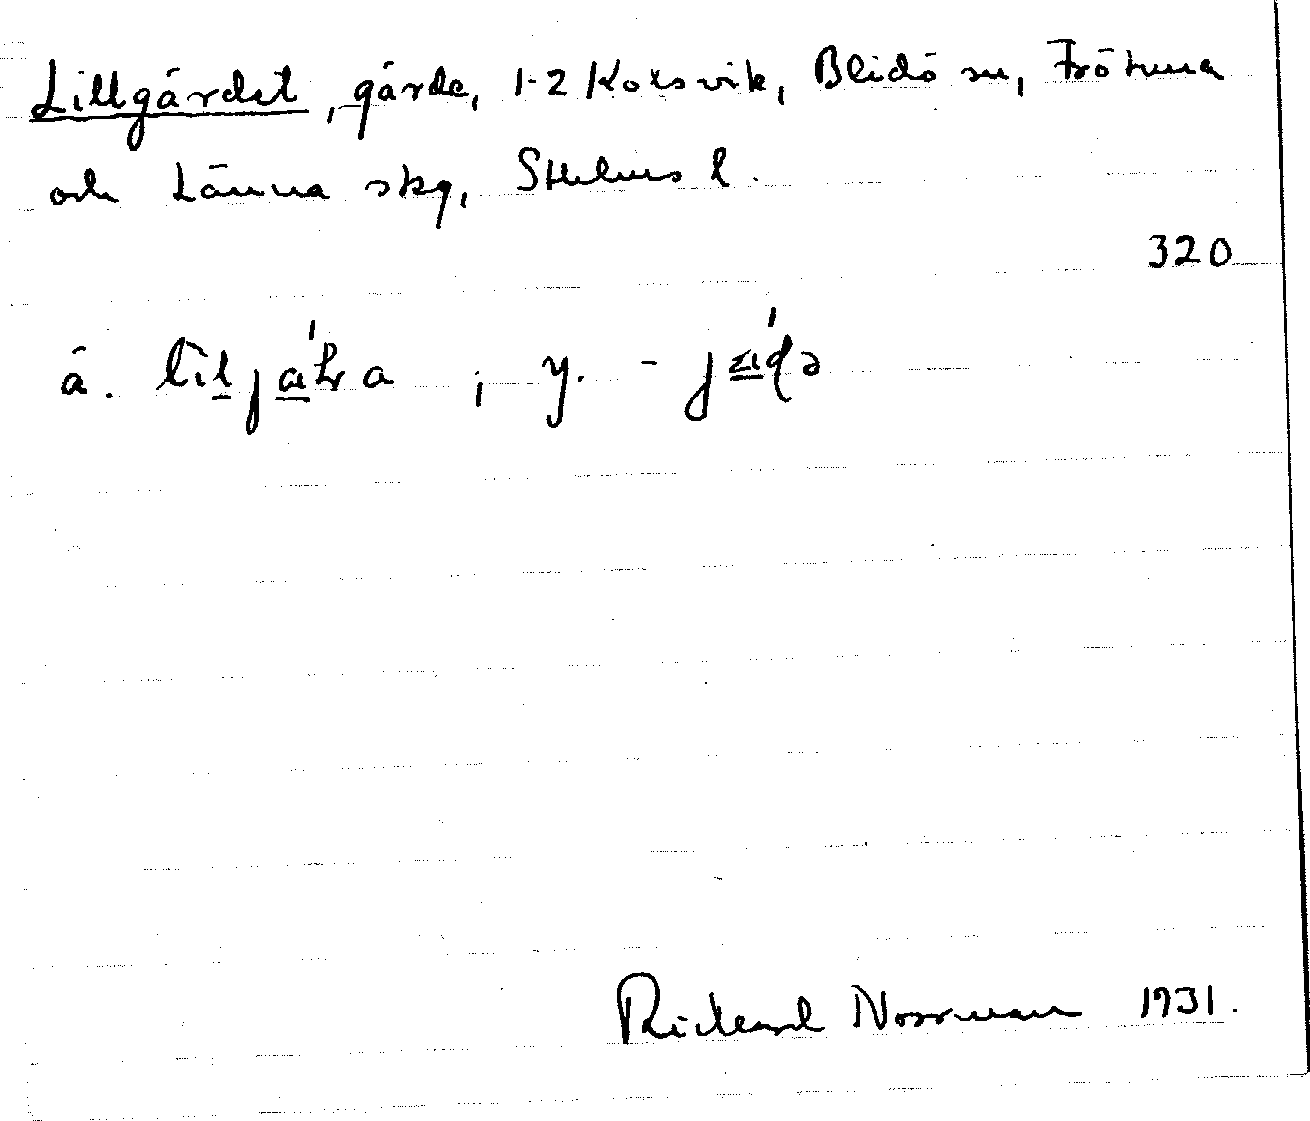 Lillgärdet, gärde, 1-2 Koxsvik, Blidö sn, Frötuna
och Länna skg, Sthlms l.
320
ä. , y. -
Rickard Norrman 1931.